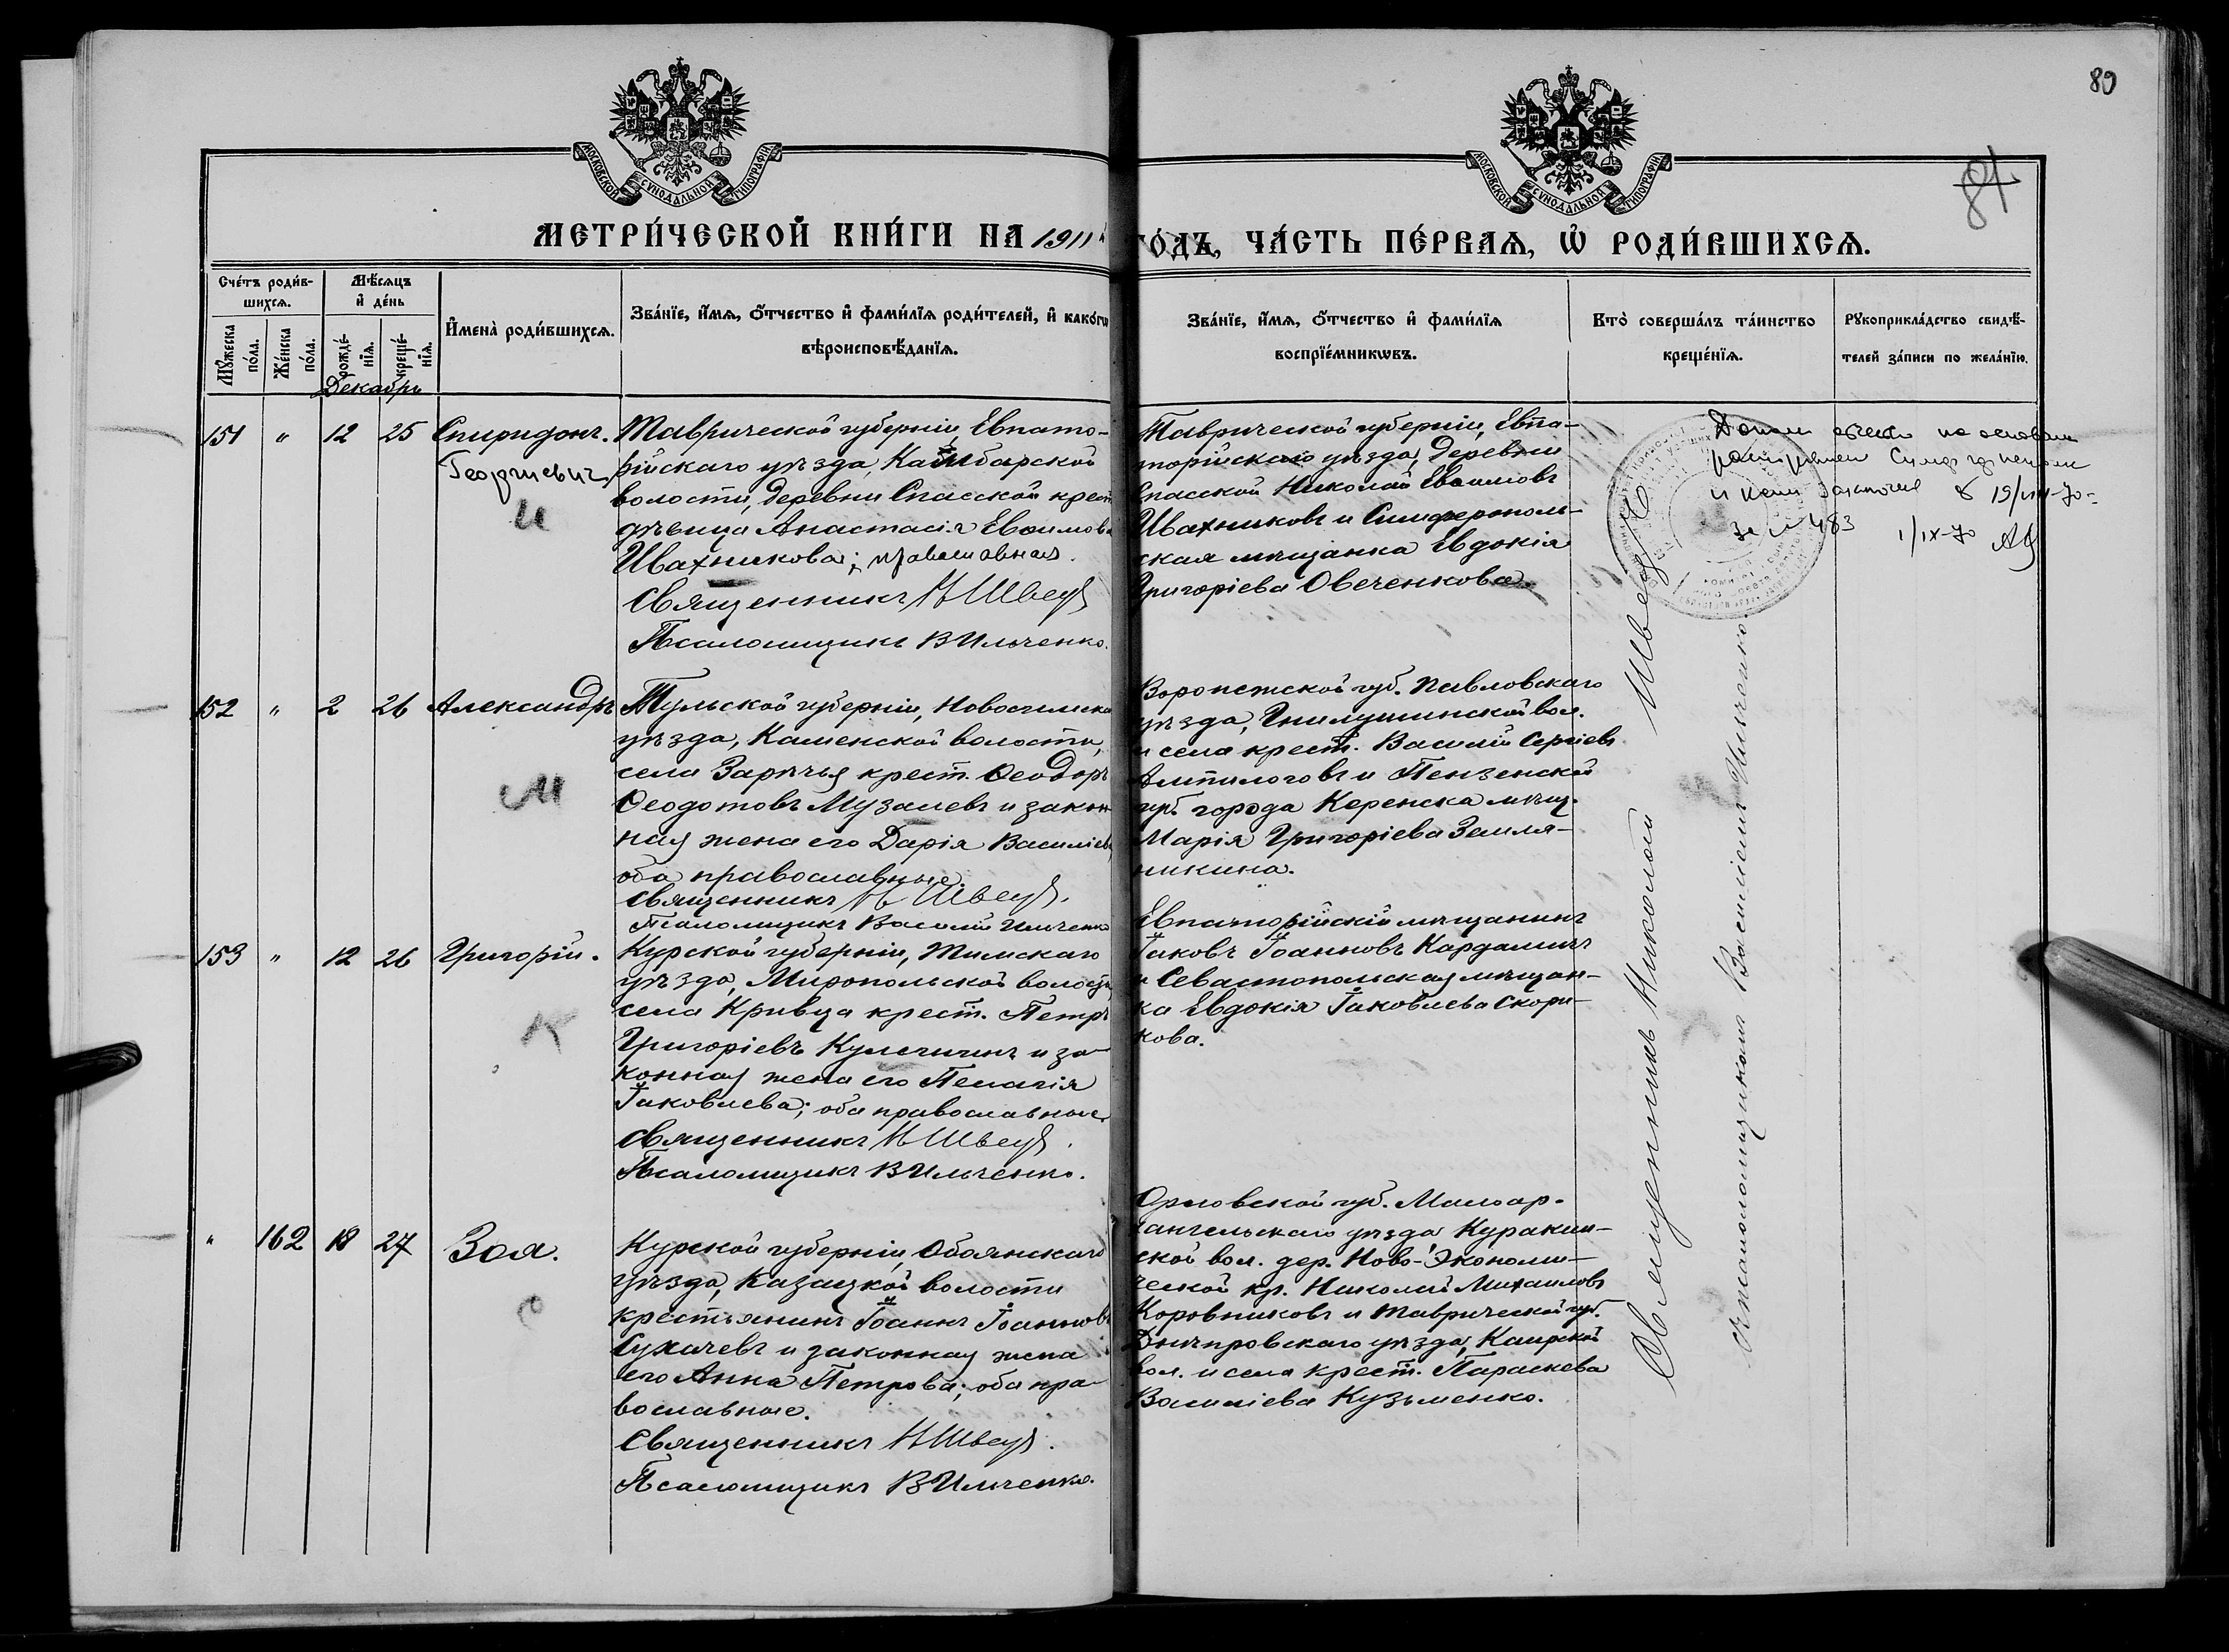 89
81
МОСКОВСКОЙ СѴНОДАЛЬНОЙ ТИПОГРАФІИ
МОСКОВСКОЙ СѴНОДАЛЬНОЙ ТИПОГРАФІИ
МЕТРИ́ЧЕСКОЙ КНИ́ГИ НА 1911
ГО́ДЪ, ЧА́СТЬ ПЕ́РВАѦ, Ѡ҆ РОДИ́ВШИХСѦ.
Сче́тъ роди́в-
шихсѧ.
Мꙋ́жеска по́ла.
Же́нска по́ла.
Мѣ́сѧцъ
и҆ де́нь
рожде́-
нїѧ.
креще́-
нїѧ.
И҆мена̀ роди́вшихсѧ.
Зва́нїе, и҆́мѧ, ѻ҆́тчество и҆ фами́лїѧ роди́телей, и҆ како́гѡ
вѣроисповѣ́данїѧ.
Зва́нїе, и҆́мѧ, ѻ҆́тчество и҆ фами́лїѧ
воспрїе́мникѡвъ.
Кто̀ соверша́лъ та́инство
креще́нїѧ.
Рꙋкоприкла́дство свидѣ́-
телей за́писи по жела́нїю.
Декабрь
151 " 12 25 Спиридонъ.
Георгиевич
Таврической губерніи, Евпато-
рійскаго уѣзда,
волости, деревни Спасской крест
дѣвица Анастасія Евѳимова
Ивахникова; православная.
Священникъ Н Швецъ
Псаломщикъ В Ильченко.
Таврической губерніи, Евпа-
торійскаго уѣзда, деревни
Спасской Николай Евѳимовъ
Ивахниковъ и Симферополь-
ская мѣщанка Евдокія
Григоріева Овеченкова.
19/VIII-70-
за № 483
1/IX-70
152 " 2 26 Александръ
Тульской губерніи, Новосильска
уѣзда, Каменской волости,
села Зарѣчья крест. Ѳеодоръ
Ѳеодотовъ Музалевъ и закон-
ная жена его Дарія Василіева
оба православные.
Священникъ Н Швецъ.
Псаломщикъ Василій Ильченко
Воронежской губ. Павловскаго
уѣзда, Гнилушинской вол.
и села крест. Василій Сергіевъ
Алтиловъ и Пензенской
губ. города Керенска мѣщ.
Марія Григоріева Земля-
никина.
153 " 12 26 Григорій.
Курской губерніи, Тимскаго
уѣзда, Миропольской волости
села Кривца крест. Петръ
Григоріевъ Кулечинъ и за-
конная жена его Пелагія
Іаковлева; оба православные
Священникъ Н Швецъ.
Псаломщикъ В Ильченко.
Евпаторійскій мѣщанинъ
Іаковъ Іоанновъ Кардашъ
и Севастопольская мѣщан-
ка Евдокія Іаковлева Скори-
кова.
" 162 18 27 Зоя.
Курской губерніи, Обоянскаго
уѣзда, Казацкой волости
крестьянинъ Іоаннъ Іоанновъ
Сухачевъ и законная жена
его Анна Петрова; оба пра-
вославные.
Священникъ Н Швецъ.
Псаломщикъ В Ильченко.
Орловской губ. Малоар-
хангельскаго уѣзда Куракин-
ской вол. дер. Ново-Экономи-
ческой кр. Николай Михаиловъ
Коровниковъ и Таврической губ.
Днѣпровскаго уѣзда, Каирской
вол. и села крест. Параскева
Василіева Кузьменко.
Священникъ Николай Швецъ
съ псаломщикомъ Василіемъ Ильченко.